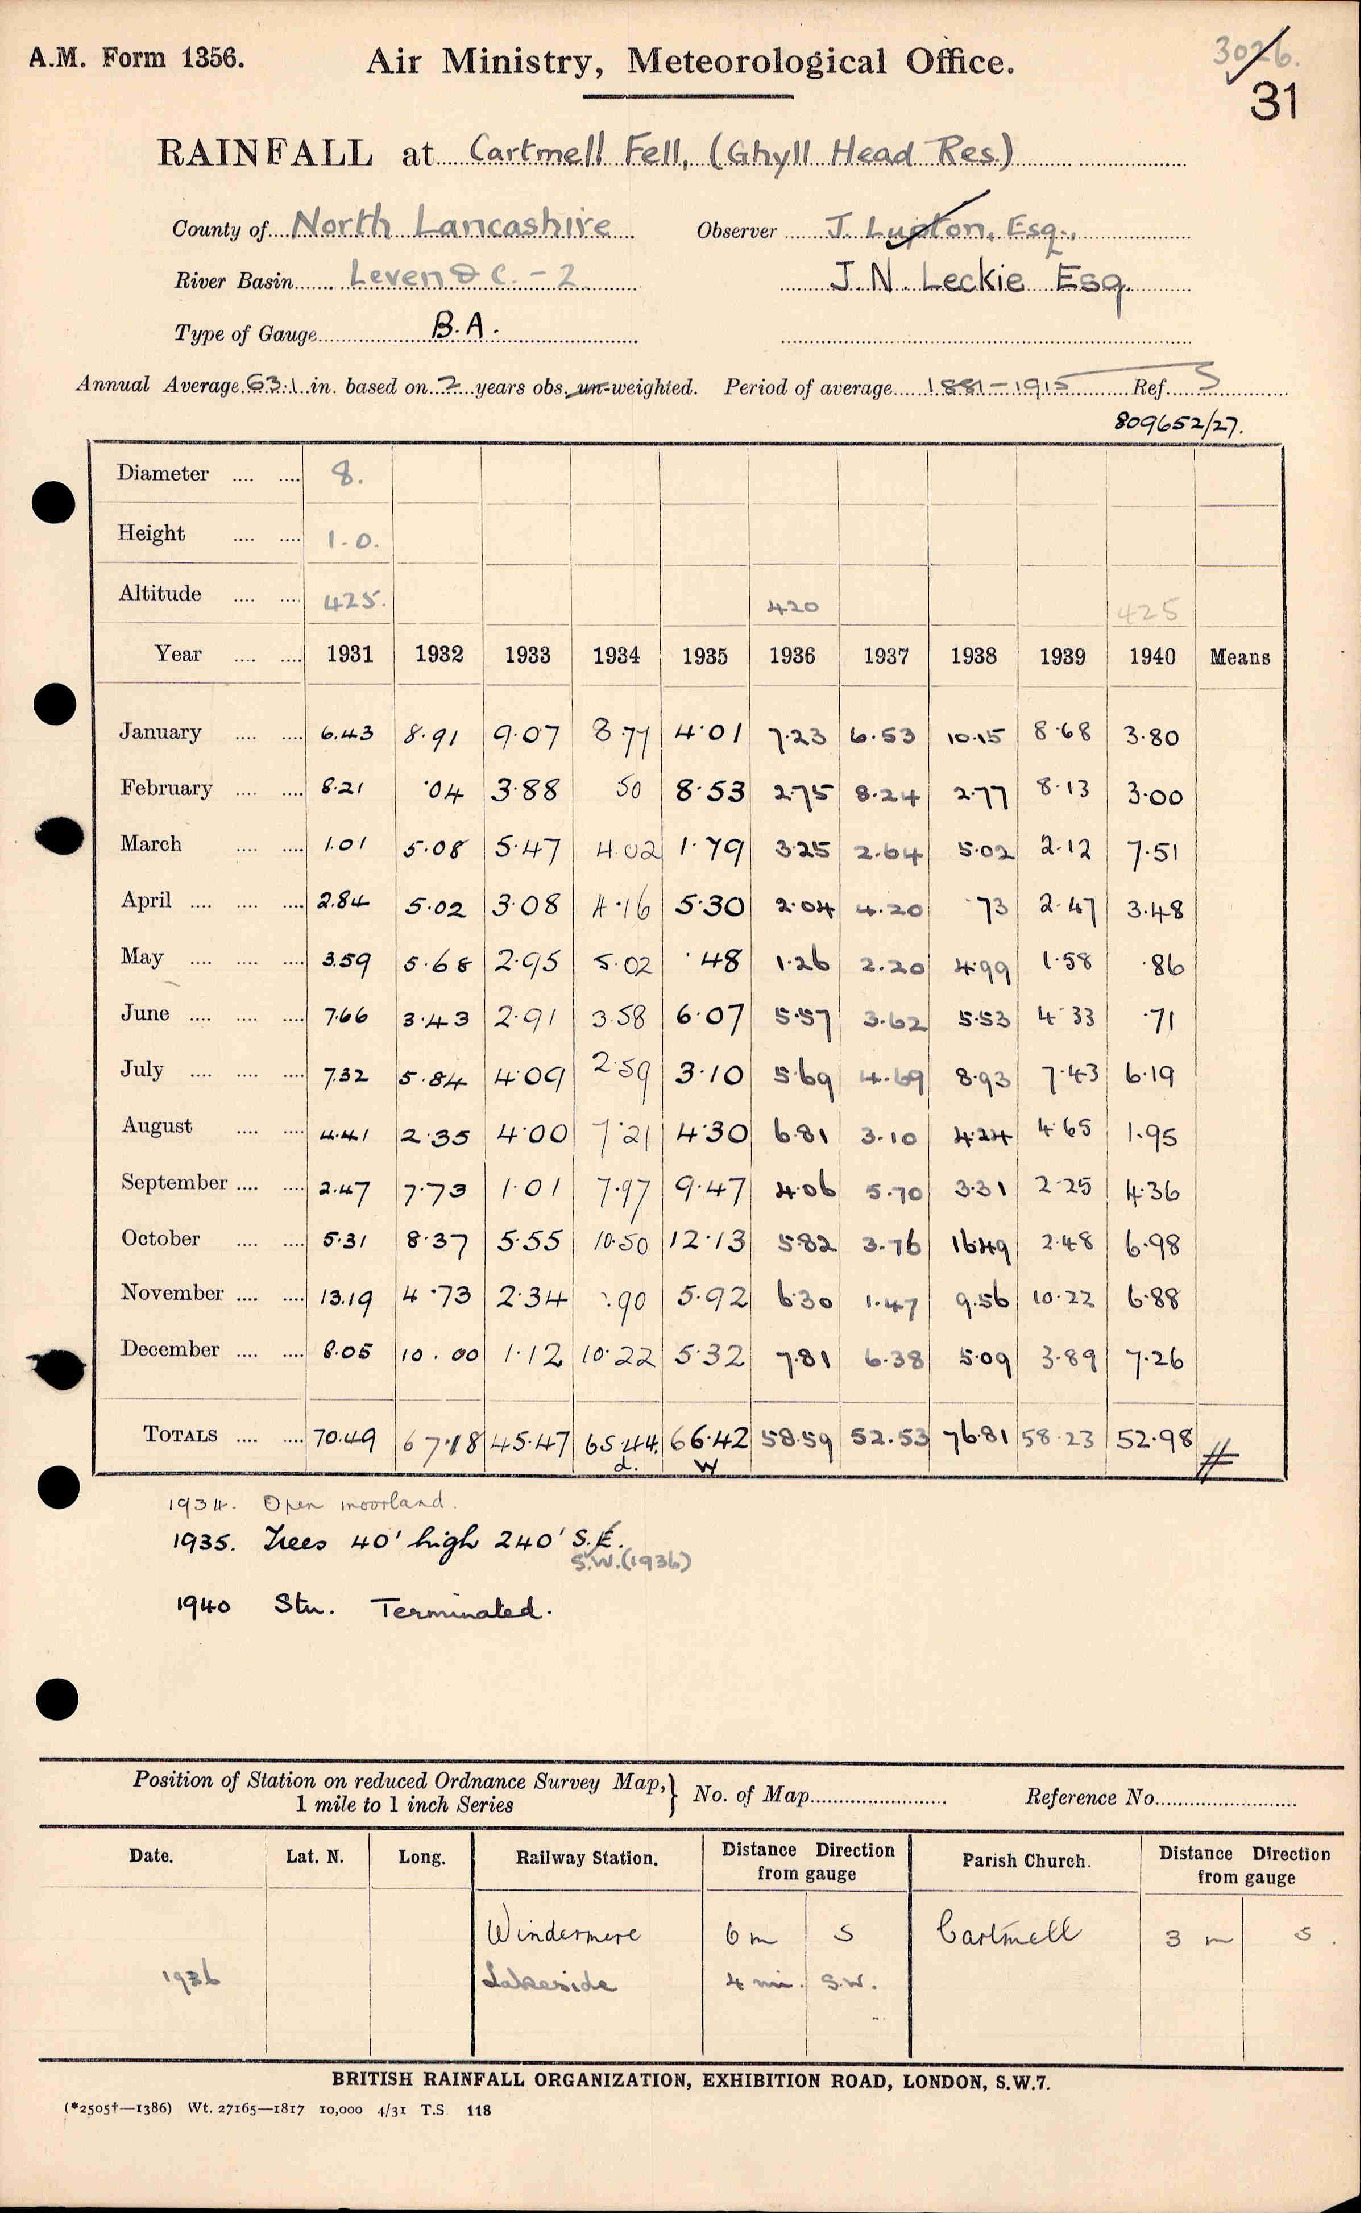 A.M. Form 1356. Air Ministry, Meteorological Office. 3026.
31
RAINFALL at Cartmell Fell, (Ghyll Head Res.)
County of North Lancashire Observer J. Lupton, Esq.,
River Basin Leven & C. - 2 J. N. Leckie Esq.
Type of Gauge B.A.
Annual Average 63.1 in. based on 7 years obs. un-weighted. Period of average 1881-1915 Ref. S
809652/27.
Diameter 8.
Height 1.0.
Altitude 425. 420 425
Year 1931 1932 1933 1934 1935 1936 1937 1938 1939 1940 Means
January 6.43 8.91 9.07 8.77 4.01 7.23 6.53 10.15 8.68 3.80
February 8.21 .04 3.88 50 8.53 2.75 8.24 2.77 8.13 3.00
March 1.01 5.08 5.47 4.02 1.79 3.25 2.64 5.02 2.12 7.51
April 2.84 5.02 3.08 4.16 5.30 2.04 4.20 .73 2.47 3.48
May 3.59 5.68 2.95 5.02 .48 1.26 2.20 4.99 1.58 .86
June 7.66 3.43 2.91 3.58 6.07 5.57 3.62 5.53 4.33 .71
July 7.32 5.84 4.09 2.59 3.10 5.69 4.69 8.93 7.43 6.19
August 4.41 2.35 4.00 7.21 4.30 6.81 3.10 4.24 4.65 1.95
September 2.47 7.73 1.01 7.97 9.47 4.06 5.70 3.31 2.25 4.36
October 5.31 8.37 5.55 10.50 12.13 5.82 3.76 16.49 2.48 6.98
November 13.19 4.73 2.34 .90 5.92 6.30 1.47 9.56 10.22 6.88
December 8.05 10.00 1.12 10.22 5.32 7.81 6.38 5.09 3.89 7.26
TOTALS 70.49 67.18 45.47 65.44 66.42 58.59 52.53 76.81 58.23 52.98 #
d. W
1934. Open moorland.
1935. Trees 40' high 240' S.E.
S.W. (1936)
1940 Stn. Terminated.
Position of Station on reduced Ordnance Survey Map, } No. of Map Reference No.
1 mile to 1 inch Series
Date. Lat. N. Long. Railway Station. Distance Direction from gauge Parish Church. Distance Direction from gauge
Windermere 6 m S Cartmell 3 m S.
1936 Lakeside 4 mi. S.W.
BRITISH RAINFALL ORGANIZATION, EXHIBITION ROAD, LONDON, S.W.7.
(*2505†—1386) Wt. 27165—1817 10,000 4/31 T.S 118